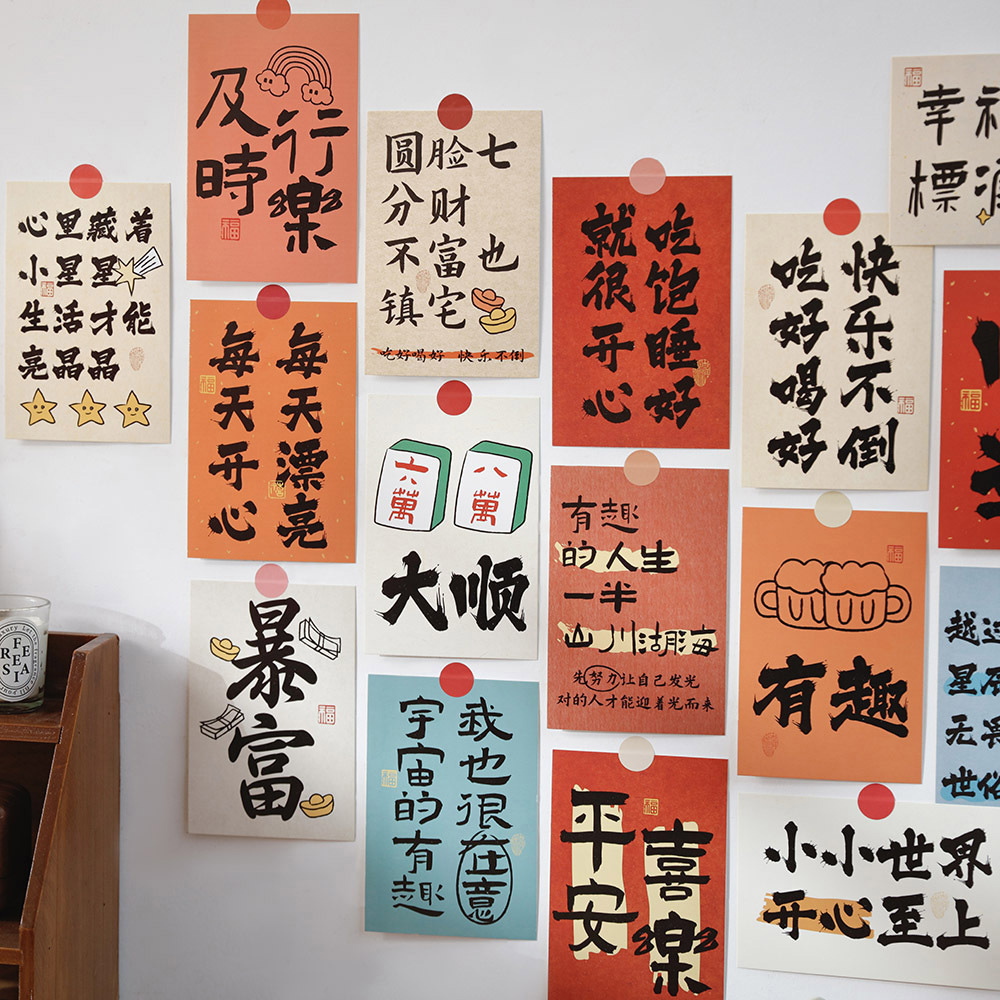 心里藏着
小星星
生活才能
亮晶晶
及時
行樂
福
每天漂亮
每天开心
福
暴富
福
圆脸七
分财
不富也
镇宅
吃好喝好 快乐不倒
六萬
八萬
大顺
我也很在意
宇宙的有趣
福
吃饱睡好
就很开心
有趣
的人生
一半
山川湖海
先努力让自己发光
对的人才能迎着光而来
平安
喜樂
福
吃好喝好
快乐不倒
福
福
有趣
福
幸
標
福
福
越
星
无
世俗
小小世界
开心至上